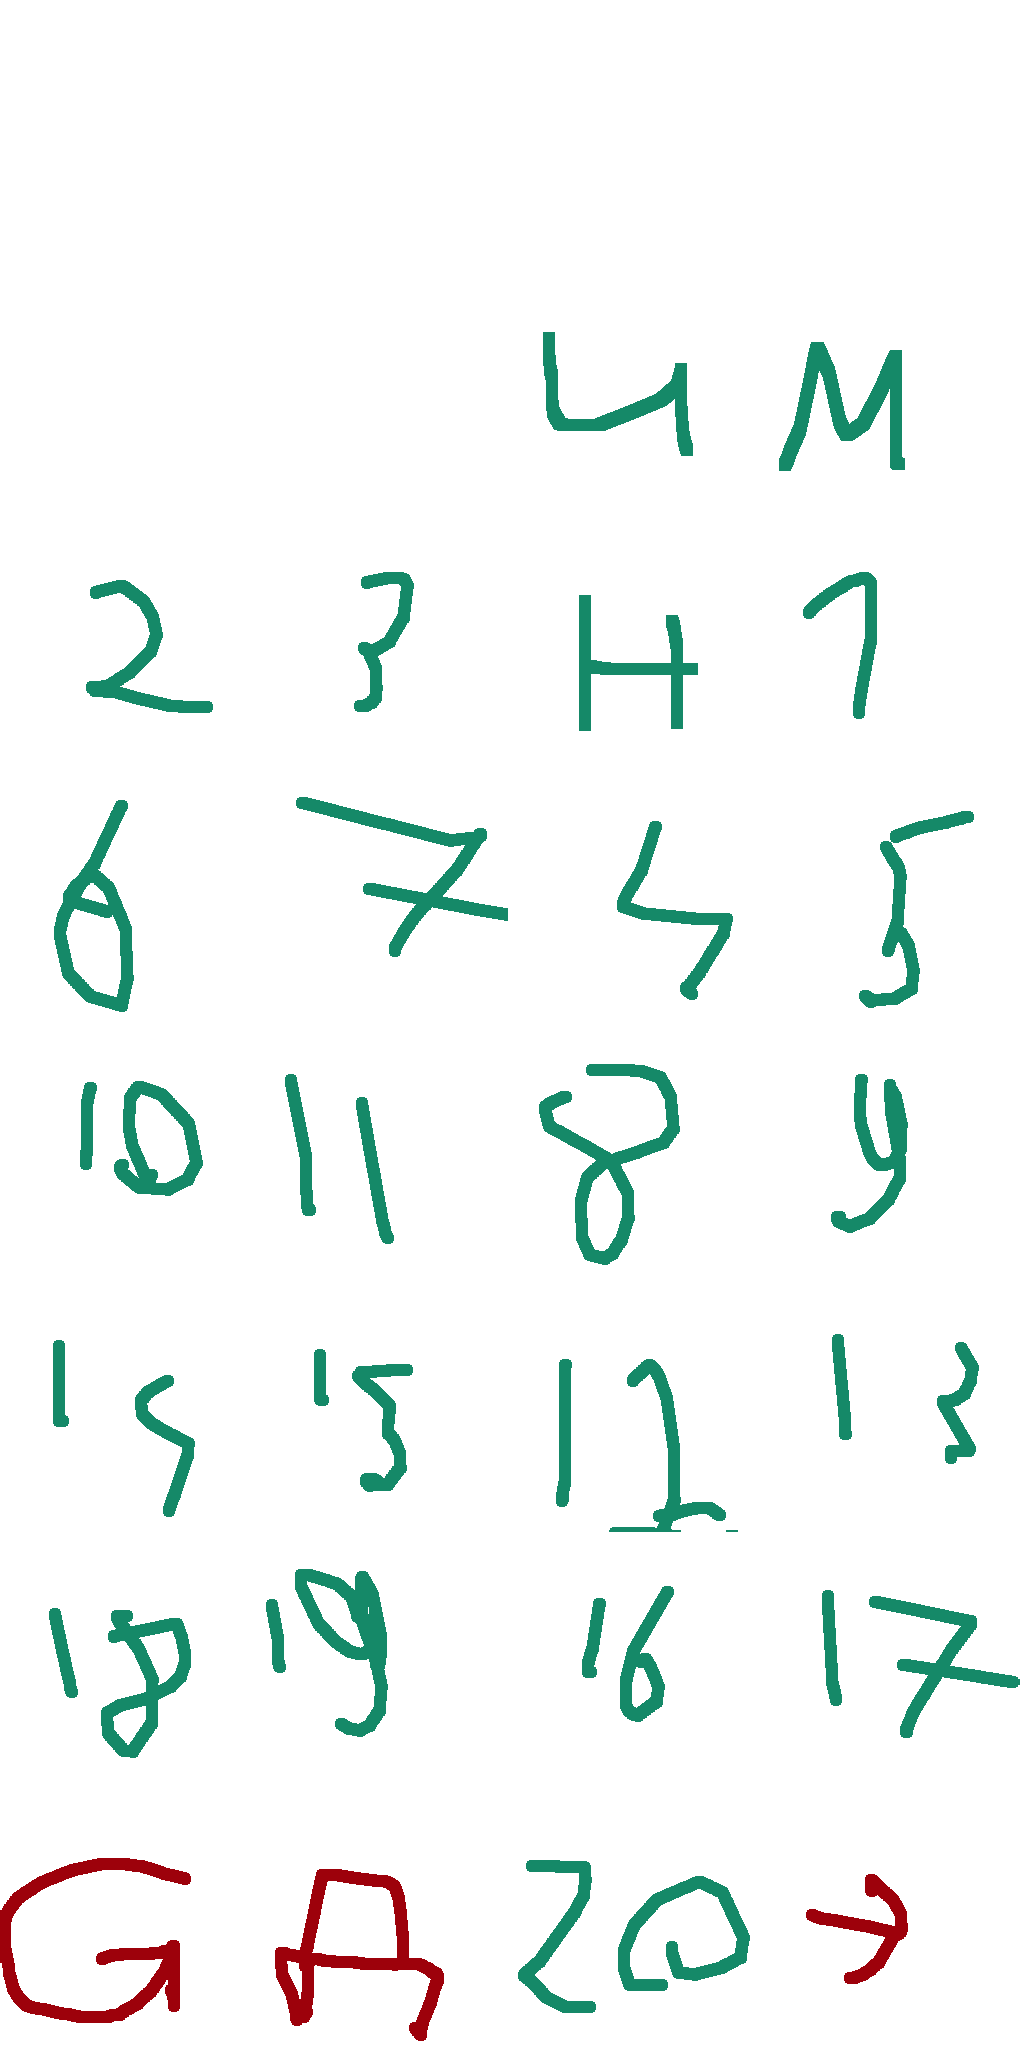 Ч М
2 3 Н 1
6 7 4 5
10 11 8 9
14 15 12 13
18 19 16 17
G Д 20 →